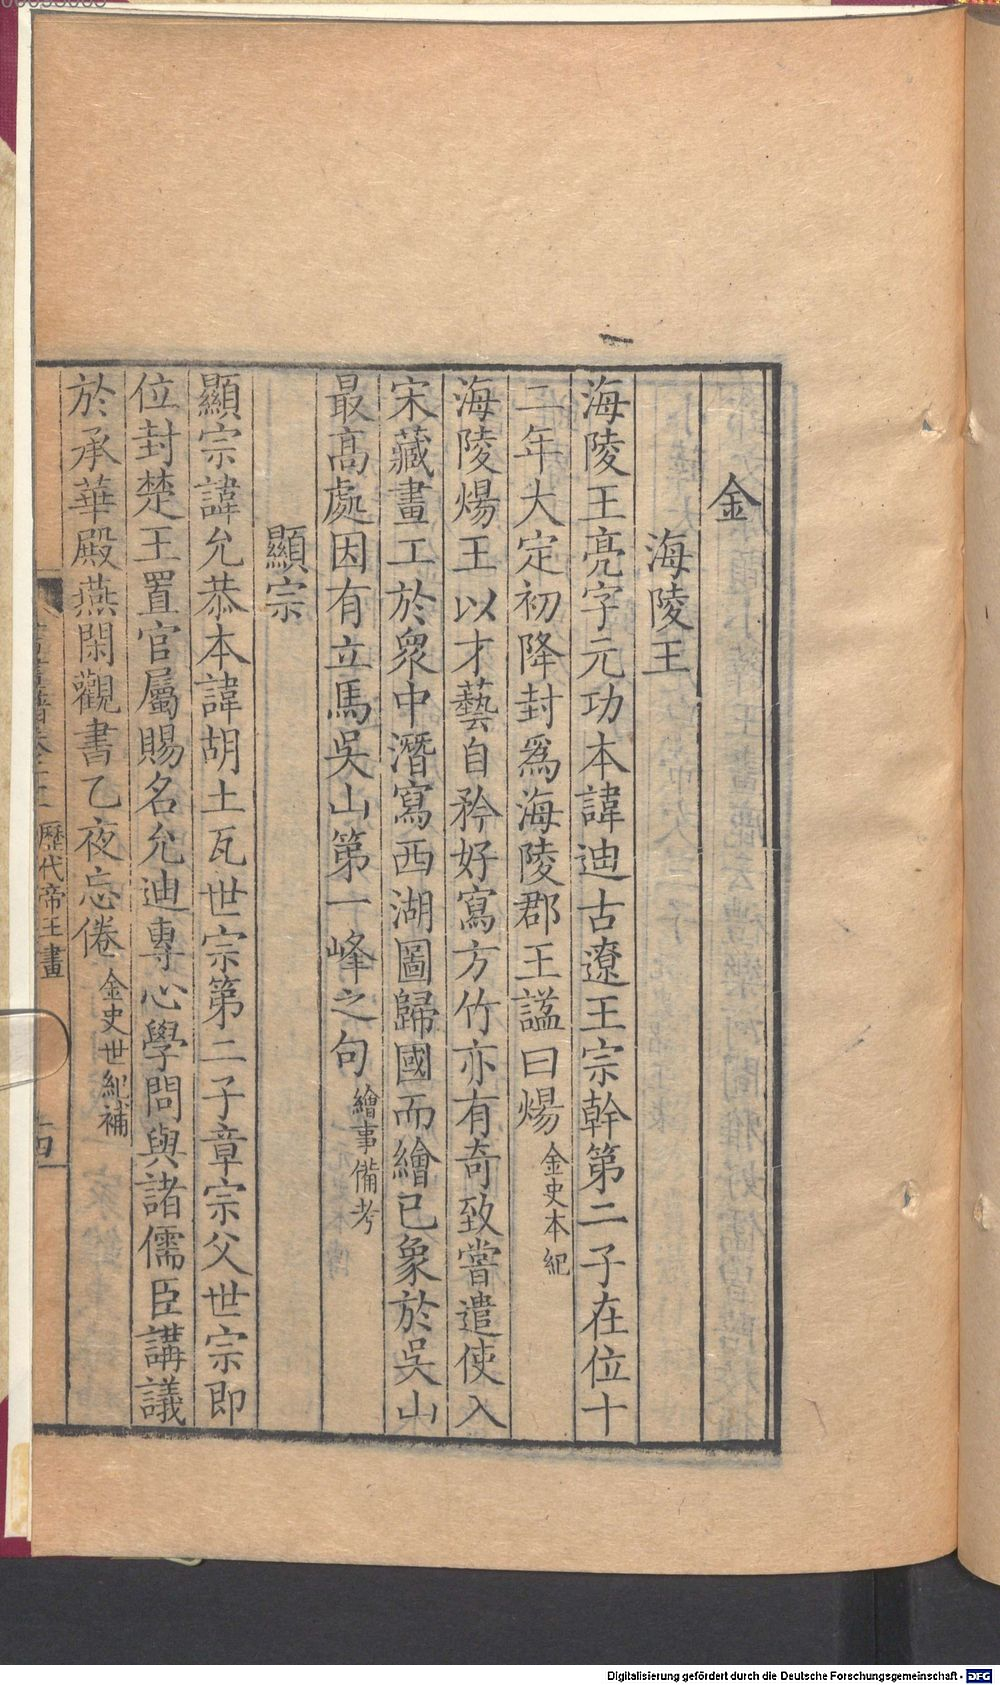 金
海陵王
海陵王亮字元功本諱迪古遼王宗幹第二子在位十
二年大定初降封爲海陵郡王諡曰煬金史本紀
海陵煬王以才藝自矜好寫方竹亦有奇致嘗遣使入
宋藏畫工於衆中潛寫西湖圖歸國而繪已象於吳山
最高處因有立馬吳山第一峰之句繪事備考
顯宗
顯宗諱允恭本諱胡土瓦世宗第二子章宗父世宗即
位封楚王置官屬賜名允迪專心學問與諸儒臣講議
於承華殿燕閑觀書乙夜忘倦金史世紀補
歷代帝王畫
Digitalisierung gefördert durch die Deutsche Forschungsgemeinschaft - DFG